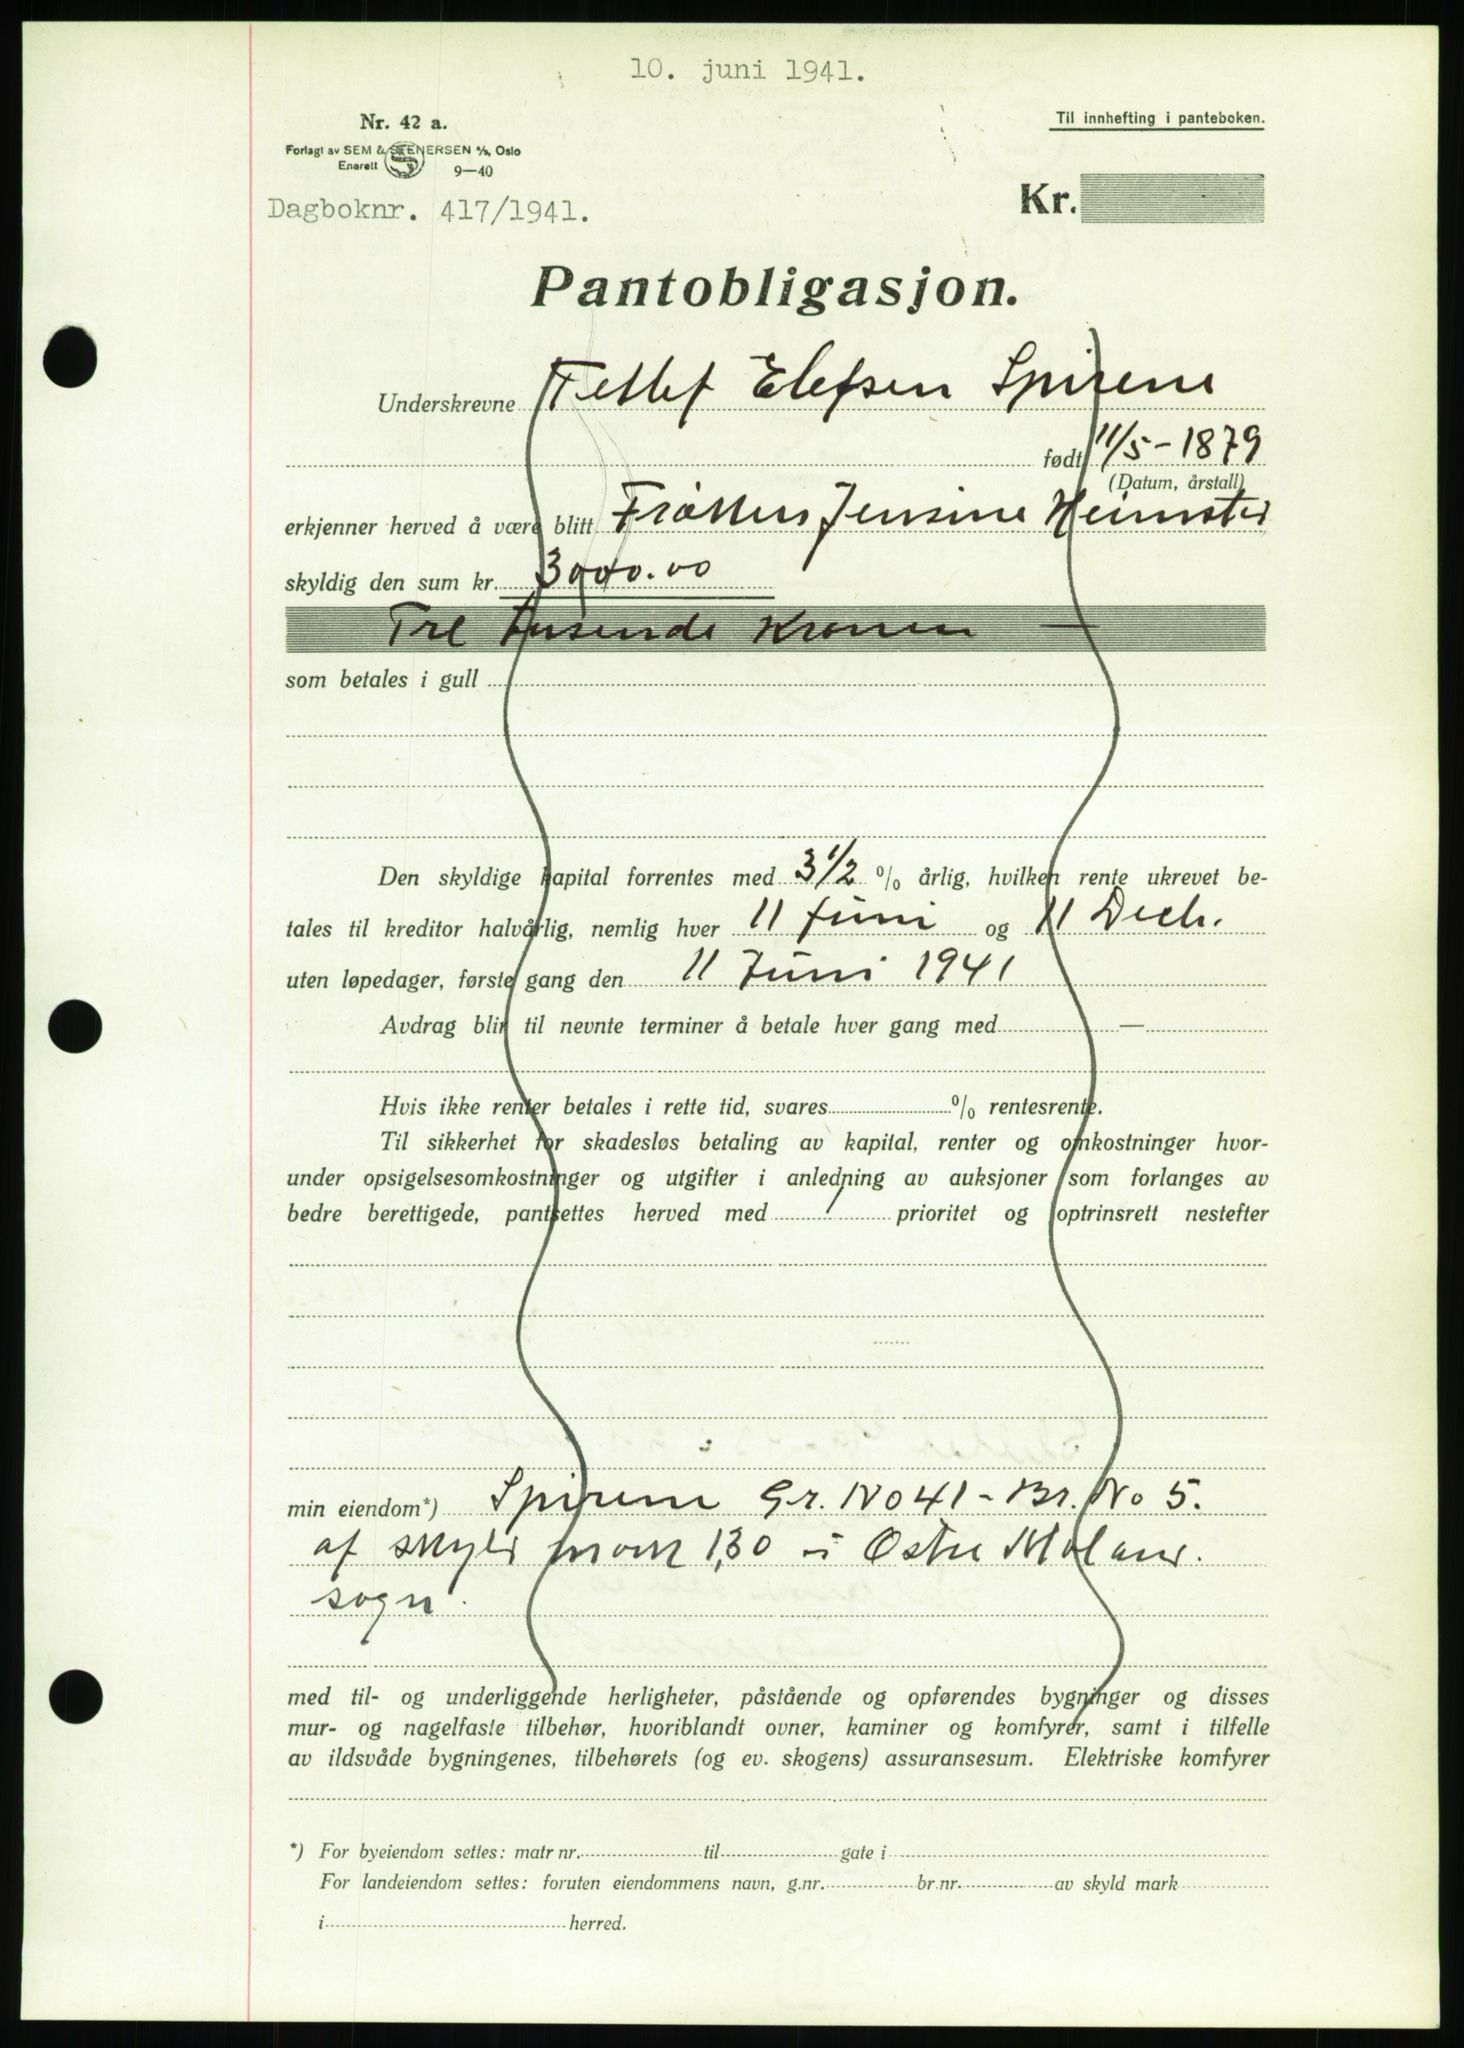 10. juni 1941.
Nr. 42 a.
Til innhefting i panteboken.
Forlagt av SEM & STENERSEN A/S, Oslo
Enerett 9—40
Dagboknr. 417/1941.
Kr.
Pantobligasjon.
Underskrevne Tellef Elefsen Spirene
født 11/5-1879
(Datum, årstall)
erkjenner herved å være blitt Frøken Jensine Heimster
skyldig den sum kr. 3000.00
Tre tusende Kroner —
som betales i gull
Den skyldige kapital forrentes med 3 1/2 % årlig, hvilken rente ukrevet be-
tales til kreditor halvårlig, nemlig hver 11 Juni og 11 Decb.
uten løpedager, første gang den 11 Juni 1941
Avdrag blir til nevnte terminer å betale hver gang med —
Hvis ikke renter betales i rette tid, svares % rentesrente.
Til sikkerhet for skadesløs betaling av kapital, renter og omkostninger hvor-
under opsigelsesomkostninger og utgifter i anledning av auksjoner som forlanges av
bedre berettigede, pantsettes herved med 1 prioritet og optrinsrett nestefter
min eiendom*) Spirene Gr. No 41 - Br. No 5.
af skyld mark 1,30 i Østre Moland.
sogn.
med til- og underliggende herligheter, påstående og opførendes bygninger og disses
mur- og nagelfaste tilbehør, hvoriblandt ovner, kaminer og komfyrer, samt i tilfelle
av ildsvåde bygningenes, tilbehørets (og ev. skogens) assuransesum. Elektriske komfyrer
*) For byeiendom settes: matr nr. til gate i
For landeiendom settes: foruten eiendommens navn, g.nr. br.nr. av skyld mark
i herred.